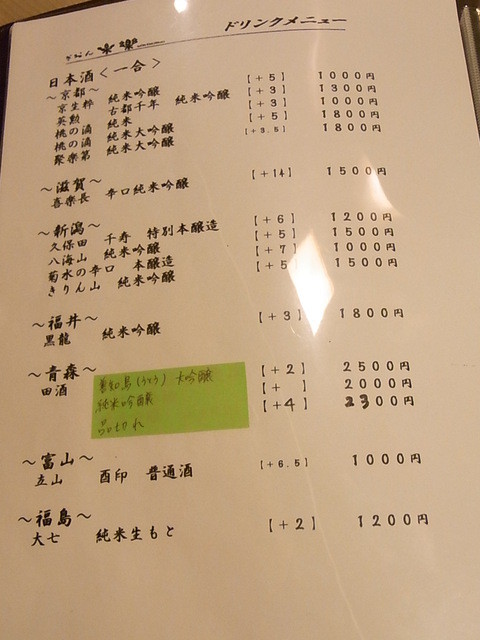 ぎをん
ドリンクメニュー
日本酒＜一合＞
～京都～
京生粋 純米吟醸 【＋5】 1000円
英勲 古都千年 純米吟醸 【＋3】 1300円
桃の滴 純米 【＋3】 1000円
桃の滴 純米大吟醸 【＋5】 1800円
聚楽第 純米大吟醸 【＋3.5】 1800円
～滋賀～
喜楽長 辛口純米吟醸 【＋14】 1500円
～新潟～
久保田 千寿 特別本醸造 【＋6】 1200円
八海山 純米吟醸 【＋5】 1500円
菊水の辛口 本醸造 【＋7】 1000円
きりん山 純米吟醸 【＋5】 1500円
～福井～
黒龍 純米吟醸 【＋3】 1800円
～青森～
田酒 善知鳥（うとう） 大吟醸 【＋2】 2500円
純米吟醸 【＋ 】 2000円
品切れ 【＋4】 2300円
～富山～
立山 酉印 普通酒 【＋6.5】 1000円
～福島～
大七 純米生もと 【＋2】 1200円